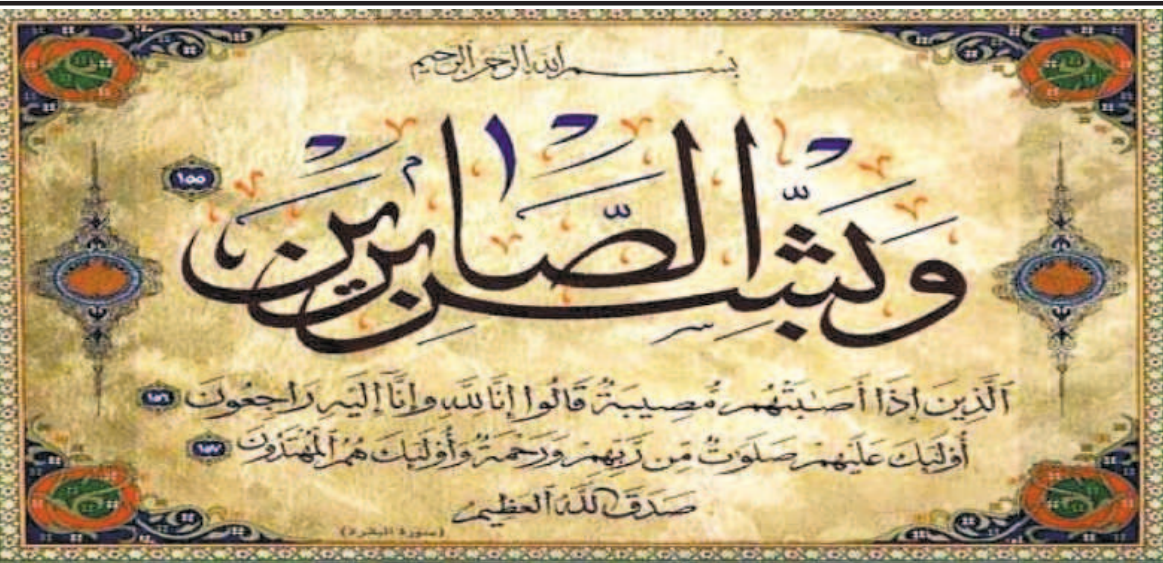 بسم الله الرحمن الرحيم
وَبَشِّرِ الصَّابِرِينَ ١٥٥
ٱلَّذِينَ إِذَآ أَصَٰبَتْهُم مُّصِيبَةٌ قَالُوٓا۟ إِنَّا لِلَّهِ وَإِنَّآ إِلَيْهِ رَٰجِعُونَ ١٥٦
أُو۟لَٰٓئِكَ عَلَيْهِمْ صَلَوَٰتٌ مِّن رَّبِّهِمْ وَرَحْمَةٌ وَأُو۟لَٰٓئِكَ هُمُ ٱلْمُهْتَدُونَ ١٥٧
صَدَقَ ٱللَّهُ ٱلْعَظِيمُ
(سورة البقرة)